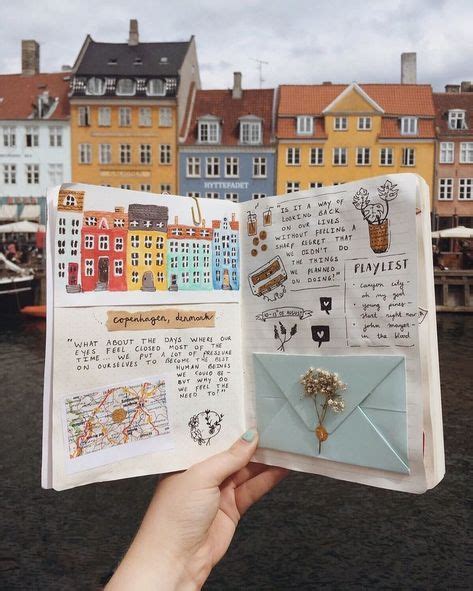 HYTTEFADET
copenhagen, denmark
"WHAT ABOUT THE DAYS WHERE OUR
EYES FEEL CLOSED MOST OF THE
TIME... WE PUT A LOT OF PRESSURE
ON OURSELVES TO BECOME THE BEST
HUMAN BEINGS
WE COULD BE -
BUT WHY DO
WE FEEL THE
NEED TO?"
"IS IT A WAY OF
LOOKING BACK
ON OUR LIVES
WITHOUT FEELING A
SHARP REGRET THAT
WE DIDN'T DO
THE THINGS WE
PLANNED ON
DOING?"
10-13 OF AUGUST
PLAYLIST
canyon city
oh my god
young pines
start right now
john mayer -
in the blood